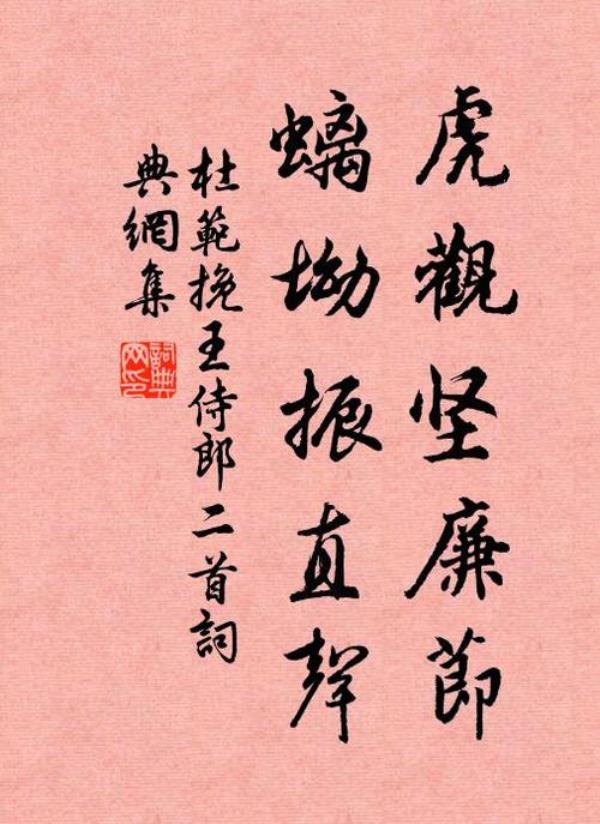 虎觀坚廉節
螭坳振直聲
杜範挽王侍郎二首詞
典網集
詞典網印